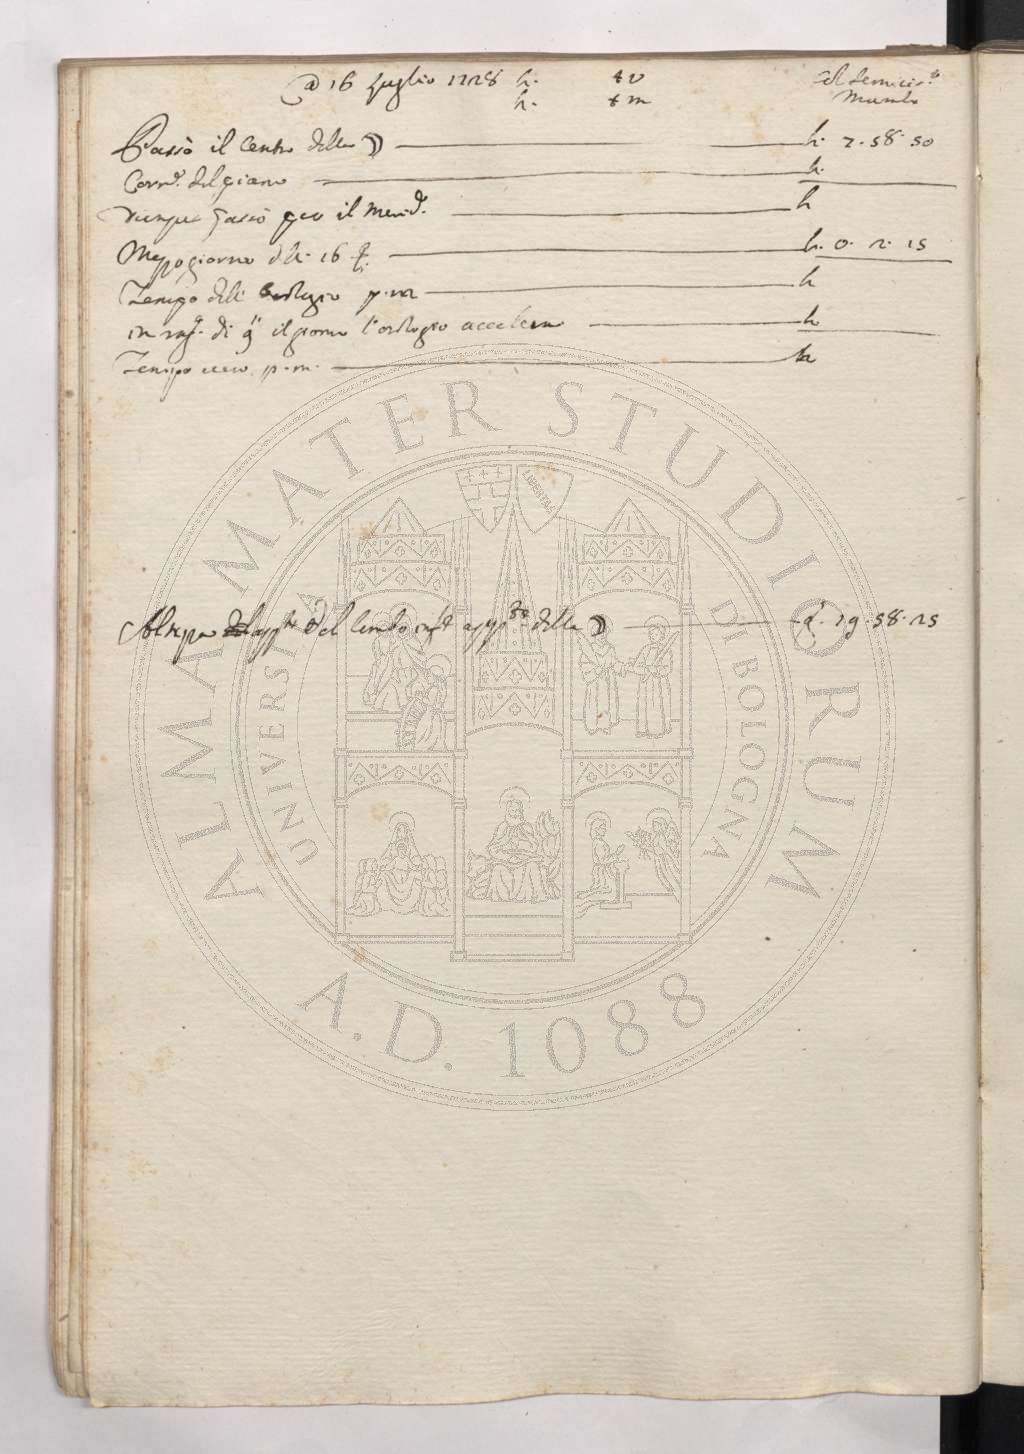 @ 16 Luglio 1728 h. t v Al Semicir.º
h. t m Murale
Passò il Centro della ☽ h. 7. 58. 50
Corr.e del piano h.
dunque passò per il Merid.º h
Mezzogiorno del 16 h. 0. 2. 15
Tempo dell' orologio p. m h
in rag.e di il giorno l'orologio accelera h
Tempo vero p. m. h
Altezza app.te del lembo inf.e della ☽ 19. 58. 25
ALMA MATER STUDIORUM
UNIVERSITÀ DI BOLOGNA
LIBERTAS
A.D. 1088